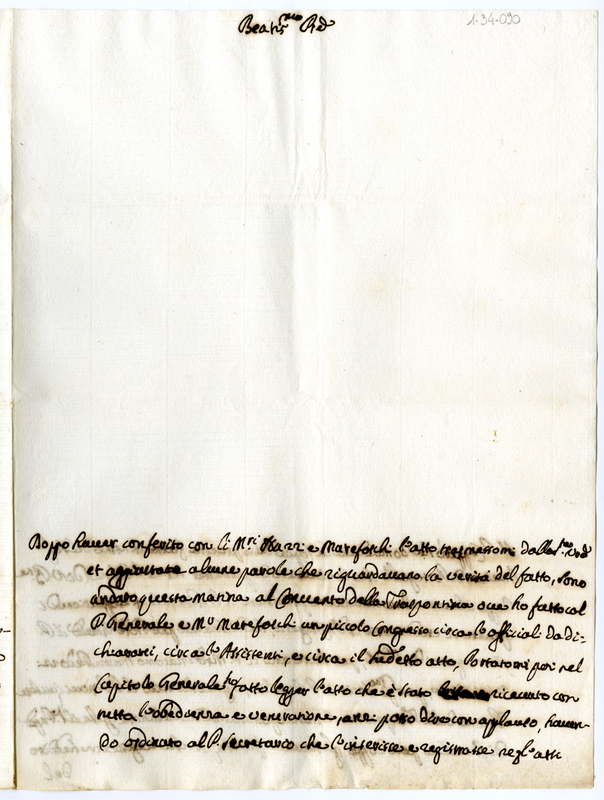 Beatis.mo Pre
1-34-090
Doppo hauer conferito con li M.ri e Marefoschi l'atto trasmessomi dalla
et aggiustate alcune parole che riguardauano la verità del fatto, sono
andato questa matina al Conuento della Traspontina oue ho fatto col
P. Generale e M.r Marefoschi un piccolo Congresso circa l'offitiali da di-
chiararsi, circa l'Assistenti, e circa il sud.etto atto, Portatomi poi nel
Capitolo Generale ho fatto legger l'atto che è stato riceuuto con
tutta l'obedienza e veneratione, anzi posso dire con applauso, hauen-
do ordinato al P. Secretario che l'inserisse e registrasse negl'atti
del